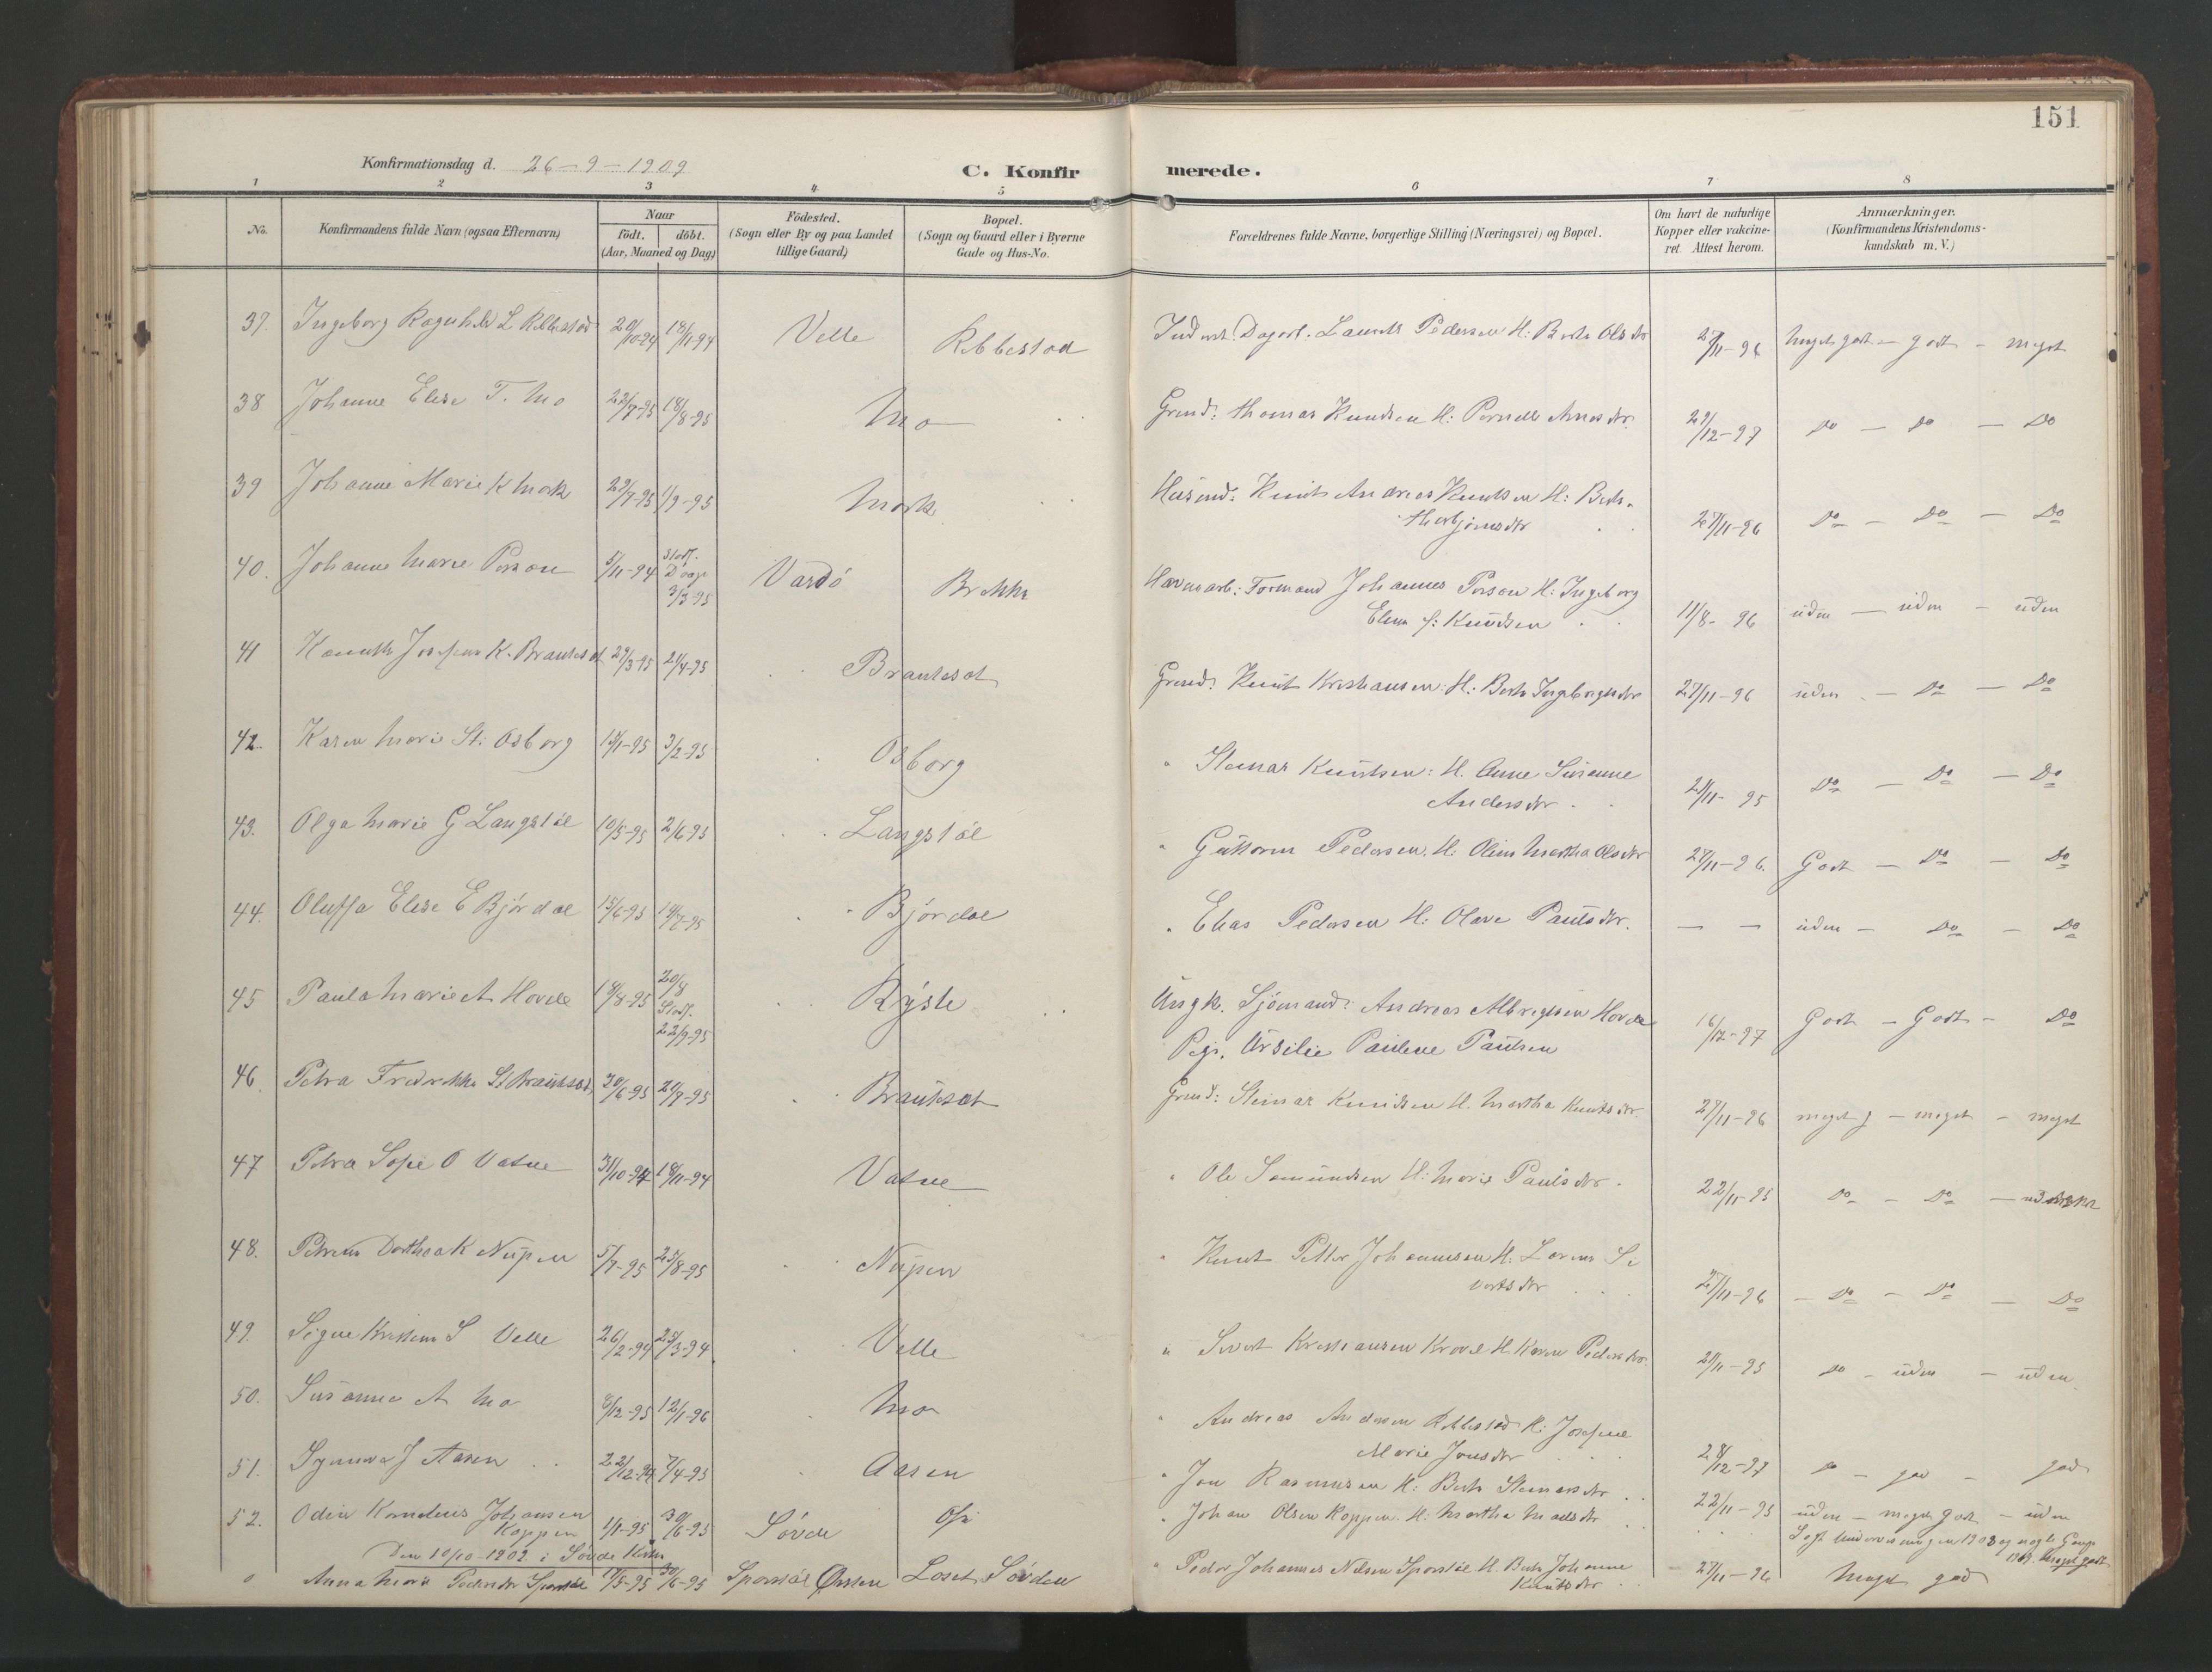 151
Konfirmationsdag d. 26-9-1909
C. Konfirmerede.
1 2 3 4 5 6 7 8
No.
Konfirmandens fulde Navn (ogsaa Efternavn)
Naar
födt. döbt.
(Aar, Maaned og Dag)
Födested.
(Sogn eller By og paa Landet
tillige Gaard)
Bopæl.
(Sogn og Gaard eller i Byerne
Gade og Hus-No.
Forældrenes fulde Navne, borgerlige Stilling (Næringsvei) og Bopæl.
Om havt de naturlige
Kopper eller vakcine-
ret. Attest herom.
Anmærkninger.
(Konfirmandens Kristendoms-
kundskab m. V.)
37. Ingeborg Ragnhild L Ribbestad 20/10-94 18/11-94 Velle Ribbestad Dagarb. Laurits Pedersen H: Berte Olsdtr 27/11-96 Meget godt - godt - meget
38 Johanne Elise T. Mo 22/7-95 18/8-95 Mo Grmd: Thomas Knudsen H: Pernille Arnesdtr. 29/12-97 Do - Do - Do
39 Johanne Marie K Mork 29/7-95 1/9-95 Mork Husmd: Knut Andreas Knutsen H: Berte
Thorbjörnsdtr 27/11-96 Do - Do - Do
40. Johanne Marie Person 5/11-94 3/3-95 Vardö Brekke Havnearb: Formand Johannes Person H: Ingeborg
Elina f: Knudsen 11/8-96 uden - uden - uden
41 Josefine K. Brauteset 29/3-95 21/4-95 Brauteset Grmd: Knut Kristiansen: H: Berte Ingebrigtsdtr 27/11-96 uden - Do - Do
42. Karen Marie St: Osborg 3/2-95 Osborg " Steinar Knutsen: H. Anne Susanne
Andersdtr 21/11-95 Do - Do - Do
43. Olga Marie G Langstöl 10/5-95 2/6-95 Langstöl " Guttorm Pedersen. H: Oline Martha Olsdtr 27/11-96. Godt - Do - Do
44. Oluffa Elise E Björdal 15/6-95 14/7-95 Björdal " Elias Pedersen H: Olave Paulsdtr. - - uden - Do - Do
45 Paula Marie A Hovde 18/8-95 20/8 22/9-95 Rÿste Ungk. Sjömand: Andreas Albregtsen Hovde
Pige. Ursilie Pauline Paulsen 16/12-97 Godt - Godt - Do
46. Petra Fredrikke St Brauteset 30/6-95 Brauteset Grmd: Steinar Knudsen H. Martha Knutsdtr. 27/11-96 meget g - meget - meget
47 Petra Sofie O Vatne 31/10-94 18/11-94 Vatne " Ole Samundsen H: Marie Paulsdtr. 22/11-95 Do - Do -
48. Petrine Dorthea K Nupen 5/7-95 25/8-95 Nupen " Knut Petter Johannesen H. Lovise Si
vertsdtr 27/11-96 - Do - Do - Do
49. Signe Kristine S Velle 26/2-94 25/3-94 Velle " Sivert Kristiansen Krovel H Karen Pedersdtr. 21/11-95 Do - uden - uden
50. Susanne A Mo 8/12-95 12/1-96 Mo " Andreas Andersen Ribbestad H: Josefine
Marie Jonsdtr 28/12-97 Do - god - god
51. Synnøve J Aasen 22/12-94 7/4-95 Aasen " Jon Rasmusen H: Berte Steinarsdtr 22/11-95 uden - meget godt - uden
52. Odin Kornelius Johansen
Koppen 1/1-95 30/6-95 Sövde " Johan Olsen Koppen. H: Martha Madsdtr
Den 10/10-1909 i Sövde Kirke
Anna Marie Pedersdtr Sporstöl 17/5-95 30/6-95 Sporstöl Örsten Löset Sövden " Peder Johannes Nilsen Sporstöl H. Berte Johanne
Knutsdtr 27/11-96 Meget god